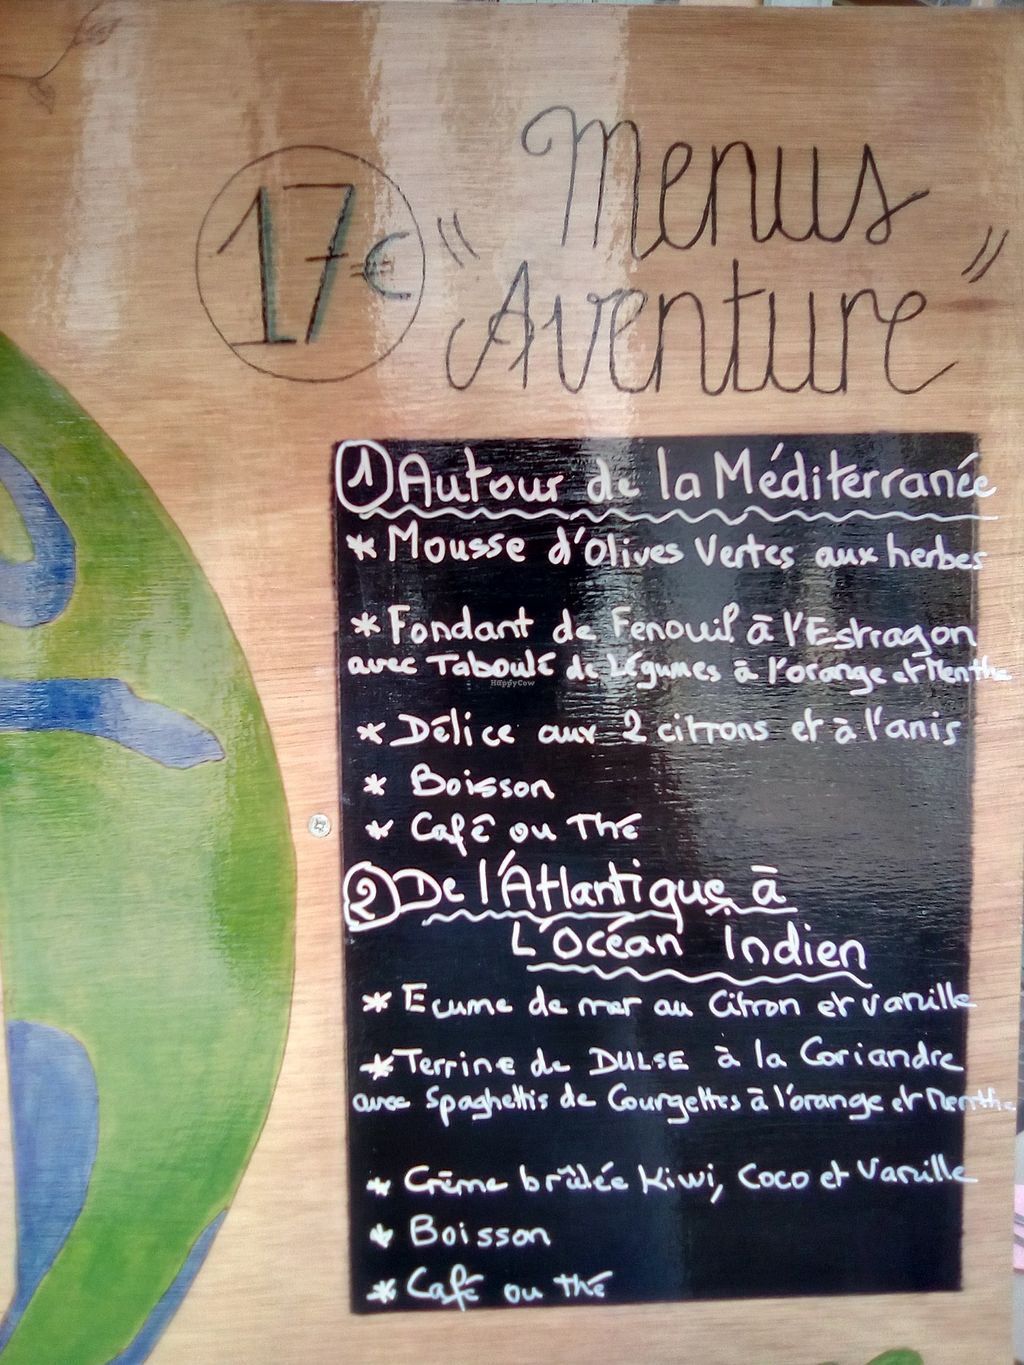 17€
"Menus
Aventure"
1 Autour de la Méditerranée
* Mousse d'Olives Vertes aux herbes
* Fondant de Fenouil à l'Estragon
avec Taboulé de Légumes à l'orange et Menthe
HappyCow
* Délice aux 2 citrons et à l'anis
* Boisson
* Café ou Thé
2 De l'Atlantique à
L'Océan Indien
* Ecume de mer au Citron et vanille
* Terrine de DULSE à la Coriandre
avec Spaghettis de Courgettes à l'orange et Menthe
* Crème brûlée Kiwi, Coco et Vanille
* Boisson
* Café ou thé